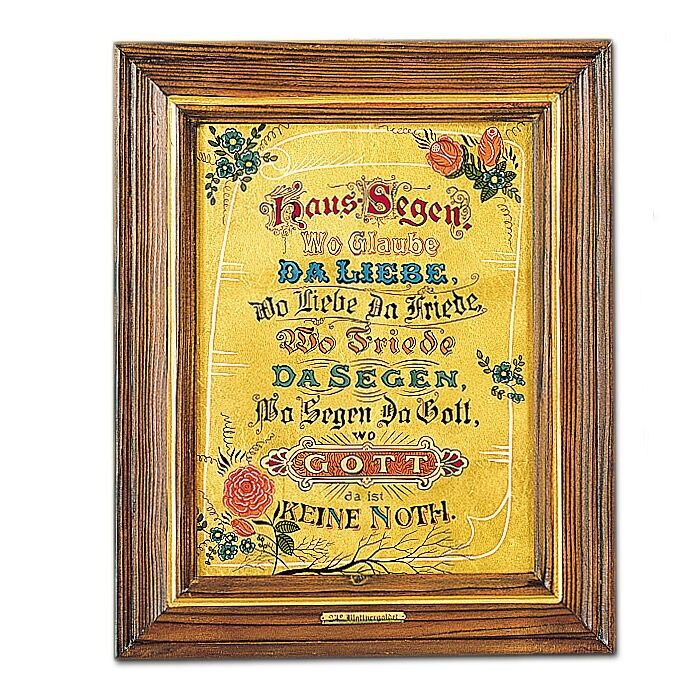 Haus-Segen.
Wo Glaube
DA LIEBE,
Wo Liebe Da Friede,
Wo Friede
DA SEGEN,
Wo Segen Da Gott,
WO
GOTT
da ist
KEINE NOTH.